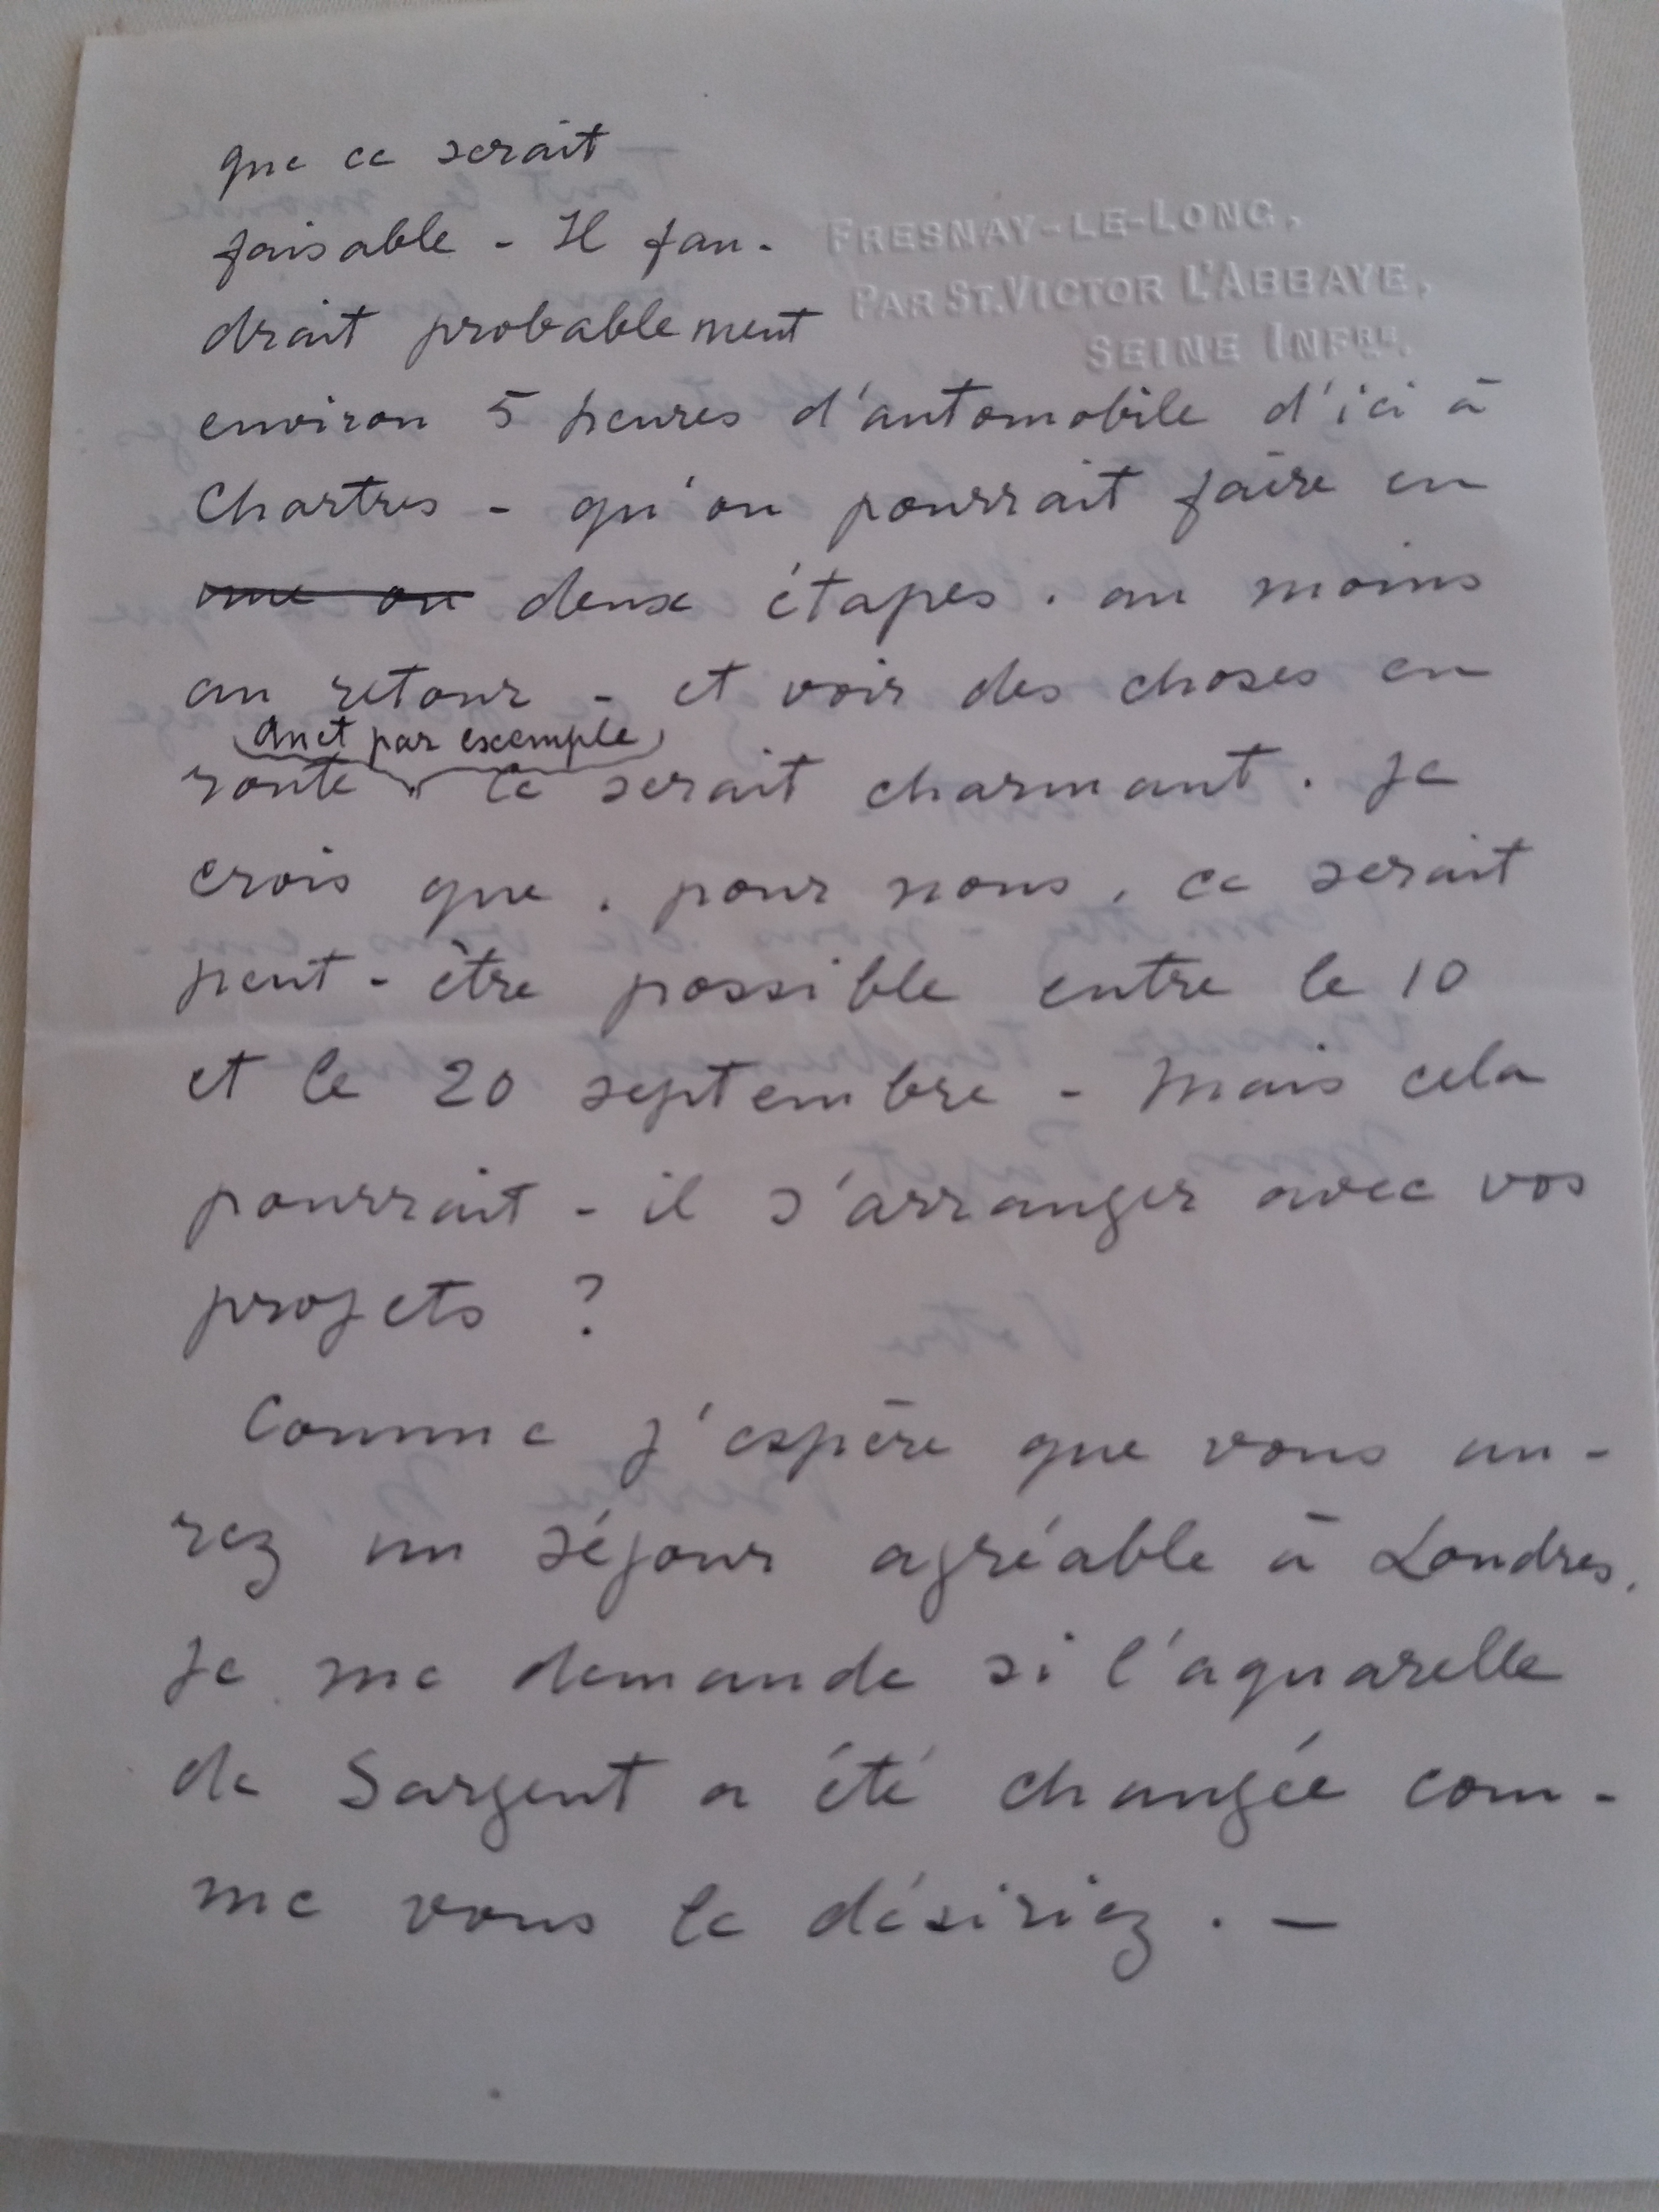 que ce serait
faisable - Il fau-
drait probablement
FRESNAY-LE-LONG,
PAR ST. VICTOR L'ABBAYE,
SEINE INFRE.
environ 5 heures d'automobile d'ici à
Chartres - qu'on pourrait faire en
une ou deux étapes. au moins
au retour - et voir des choses en
Anet par exemple
route ce serait charmant. Je
crois que, pour nous, ce serait
peut-être possible entre le 10
et le 20 septembre - Mais cela
pourrait-il s'arranger avec vos
projets ?
Comme j'espère que vous au-
rez un séjour agréable à Londres.
Je me demande si l'aquarelle
de Sargent a été changée com-
me vous le désiriez. -